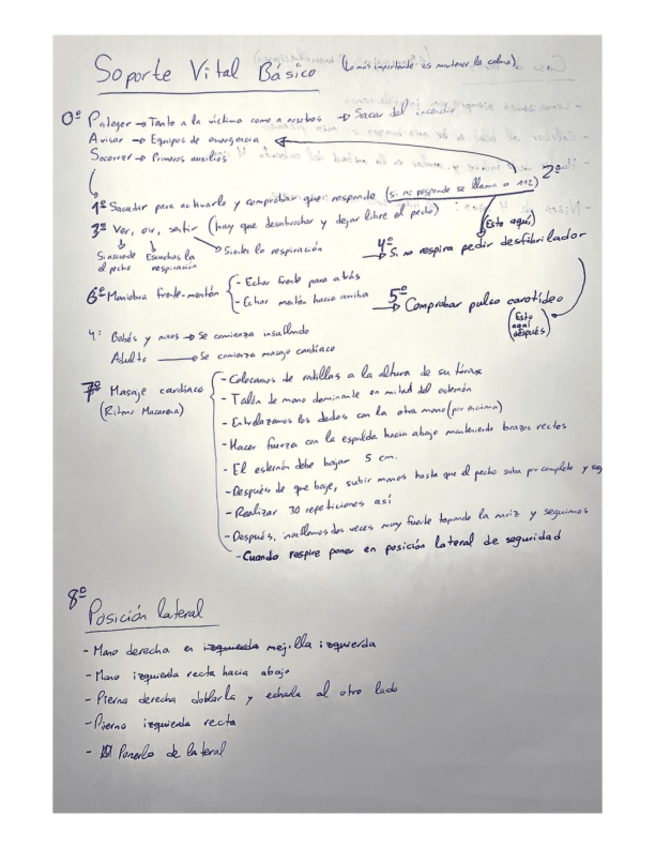 Soporte Vital Básico (Lo más importante es mantener la calma)
0º Proteger → Tanto a la víctima como a nosotros → Sacar del incendio
Avisar → Equipos de emergencia
Socorrer → Primeros auxilios
2º
1º Sacudir para activarlo y comprobar que responde (si no responde se llama a 112)
3º Ver, oir, sentir (hay que desabrochar y dejar libre el pecho) (Esto aquí)
Si asciende el pecho
Escuchas la respiración
Sientes la respiración
4º → Si no respira pedir desfibrilador
6º Maniobra frente-mentón
- Echar frente para atrás
- Echar mentón hacia arriba
5º → Comprobar pulso carotídeo
(Esto aquí después)
4: Bebés y niños → Se comienza insuflando
Adulto → Se comienza masaje cardíaco
7º Masaje cardíaco
(Ritmo Macarena)
- Colocamos de rodillas a la altura de su tórax
- Talón de mano dominante en mitad del esternón
- Entrelazamos los dedos con la otra mano (por encima)
- Hacer fuerza con la espalda hacia abajo manteniendo brazos rectos
- El esternón debe bajar 5 cm.
- Después de que baje, subir manos hasta que el pecho suba por completo y seg
- Realizar 30 repeticiones así
- Después, insuflamos dos veces muy fuerte tapando la nariz y seguimos
- Cuando respire poner en posición lateral de seguridad
8º
Posición lateral
- Mano derecha en izquierda mejilla izquierda
- Mano izquierda recta hacia abajo
- Pierna derecha doblarla y echarla al otro lado
- Pierna izquierda recta
- Ponerlo de lateral